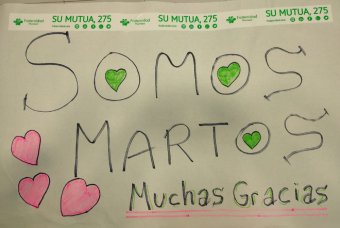 Fraternidad SU MUTUA, 275 Fraternidad SU MUTUA, 275 Fraternidad SU MUTUA, 275
SOMOS
MARTOS
Muchas Gracias